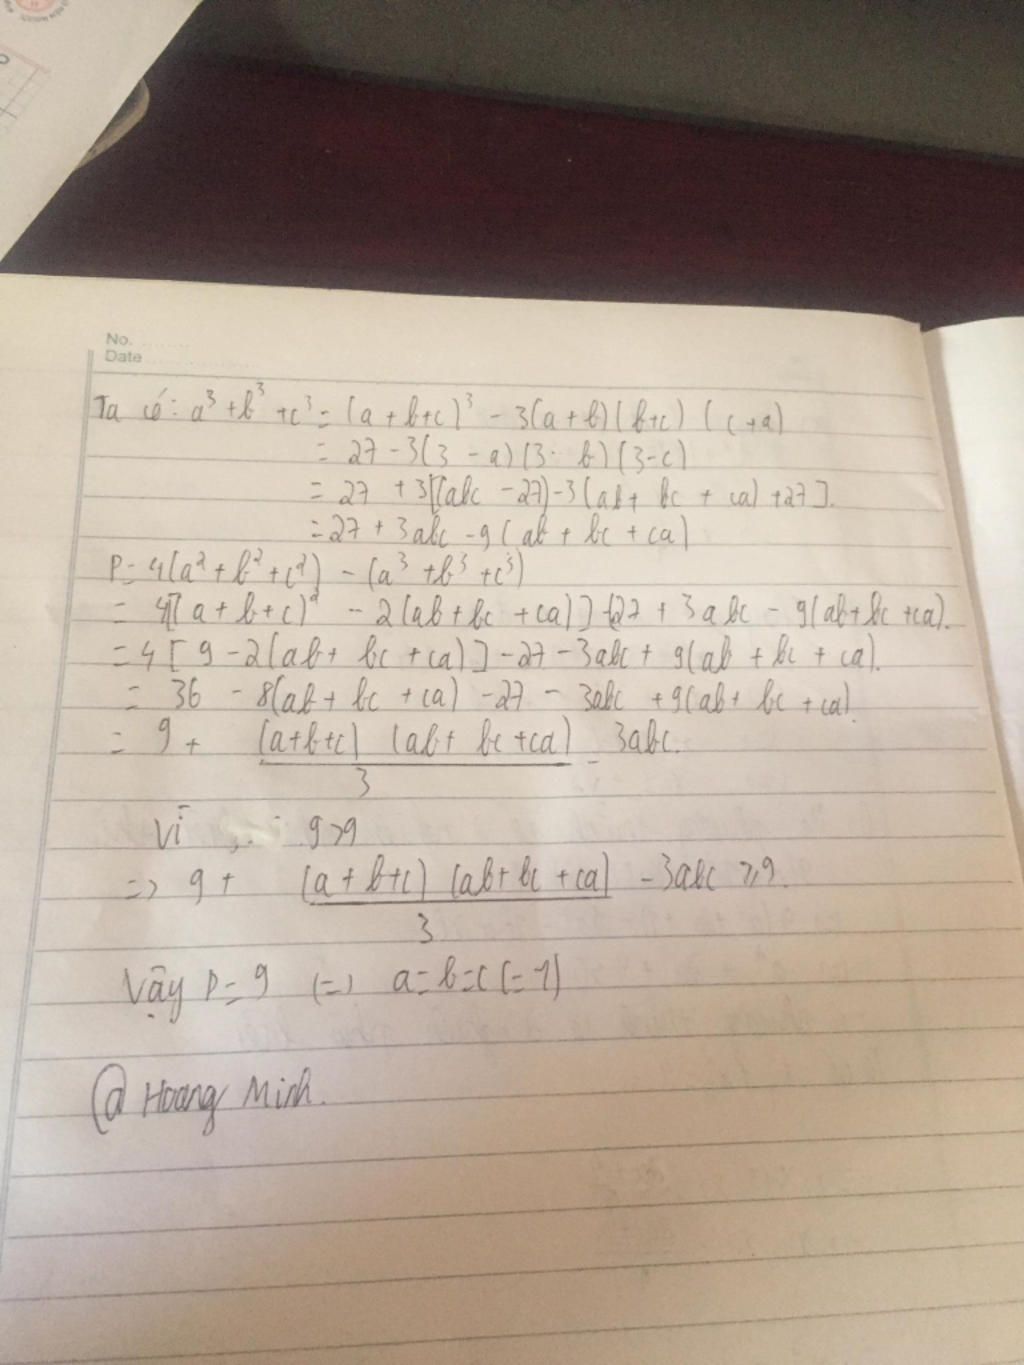 No.
Date
Ta có: a³ + b³ + c³ = (a + b + c)³ - 3(a + b)(b + c)(c + a)
= 27 - 3(3 - a)(3 - b)(3 - c)
= 27 + 3[(abc - 27) - 3(ab + bc + ca) + 27].
= 27 + 3abc - 9(ab + bc + ca)
P = 4(a² + b² + c²) - (a³ + b³ + c³)
= 4[(a + b + c)² - 2(ab + bc + ca)] - (27 + 3abc - 9(ab + bc + ca).
= 4[9 - 2(ab + bc + ca)] - 27 - 3abc + 9(ab + bc + ca).
= 36 - 8(ab + bc + ca) - 27 - 3abc + 9(ab + bc + ca)
= 9 + (a + b + c)(ab + bc + ca) - 3abc.
3
Vì 9 ≥ 9
=> 9 + (a + b + c)(ab + bc + ca) - 3abc ≥ 9.
3
Vậy P = 9 (=) a = b = c (= 1)
@ Hoang Minh.